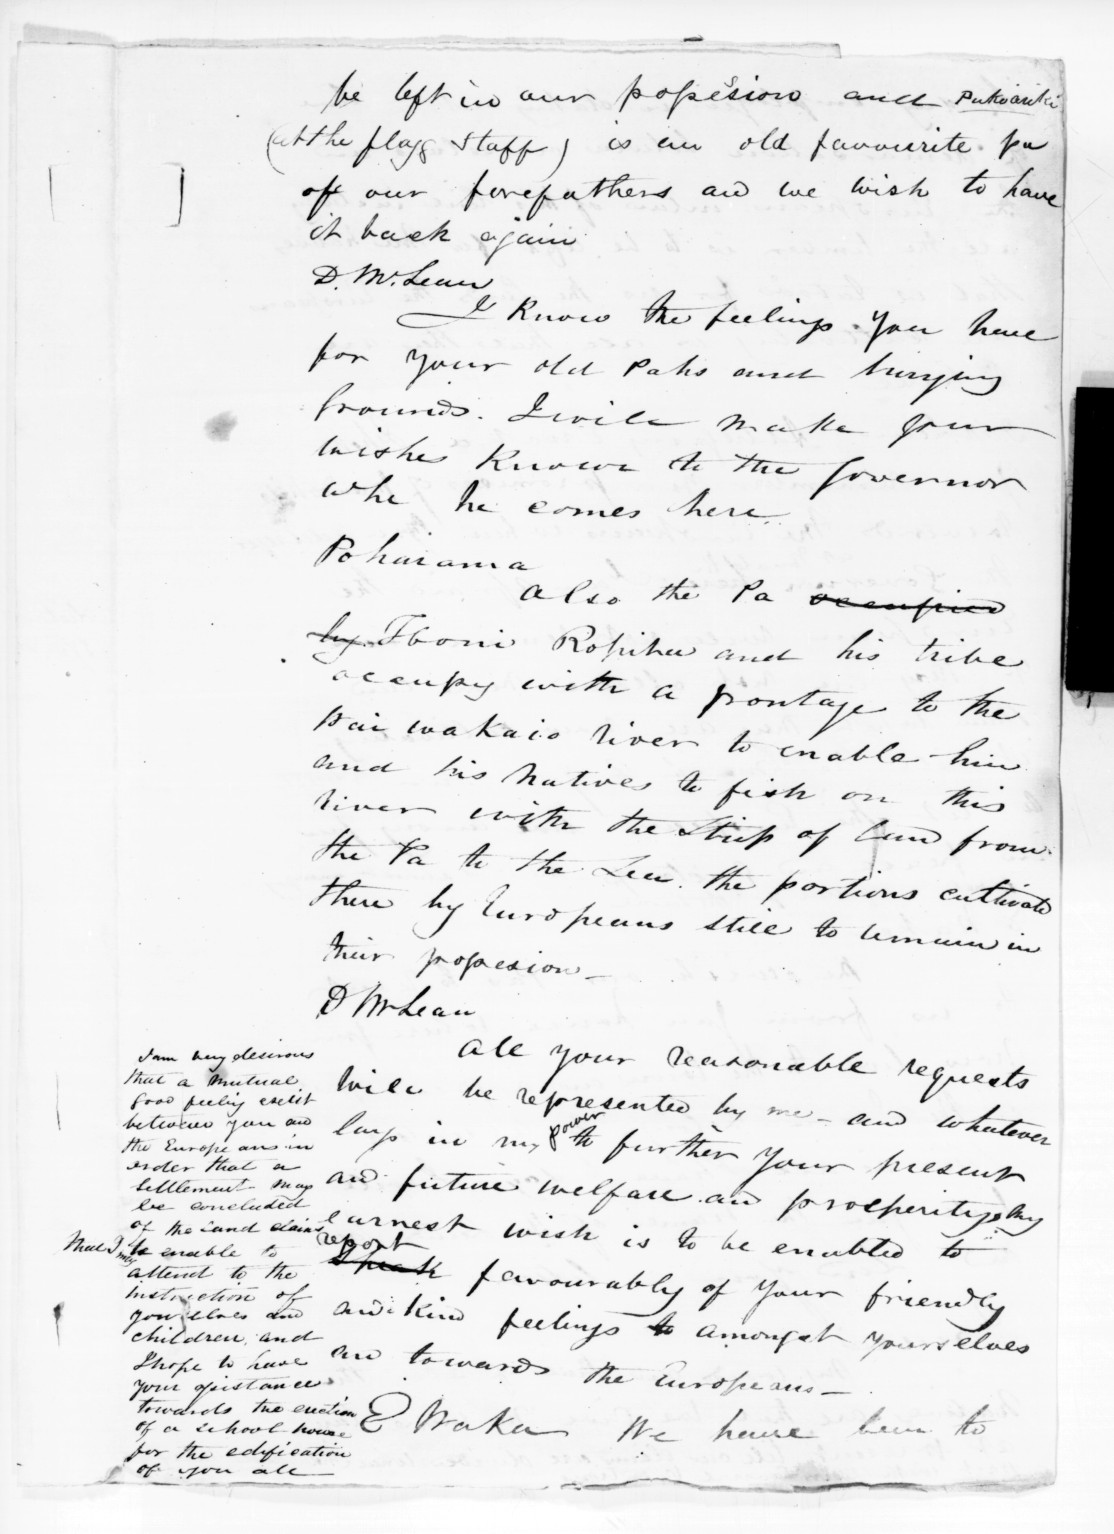 be left in our possession and Pukiariki
(at the flagg staff) is an old favourite pa
of our forefathers and we wish to have
it back again
D. McLean
I know the feelings you have
for your old Pahs and burying
Grounds. I will make your
wishes known to the Governor
whe he comes here.
Poharama
Also the Pa occupied
by Eboni Ropiha and his tribe
occupy with a frontage to the
river to enable him
and his natives to fish on this
river with the strip of land from
the Pa to the Sea. the portions cultivated
there by Europeans still to remain in
their possesion_
D McLean
All your reasonable requests
will be represented by me_ and whatever
lays in my power to further your present
and future welfare and prosperity, my
earnest wish is to be enabled to
report
speak favourably of your friendly
and kind feelings to amongst yourselves
and towards the Europeans_
E Waka We have been to
I am very desirous
that a mutual
good feeling exist
between you and
the Europeans in
order that a
Settlement may
be concluded
of the Land claims
That I may to enable to
attend to the
instruction of
yourselves and
children, and
I hope to have
your assistance
towards the erection
of a School house
for the edification
of you all